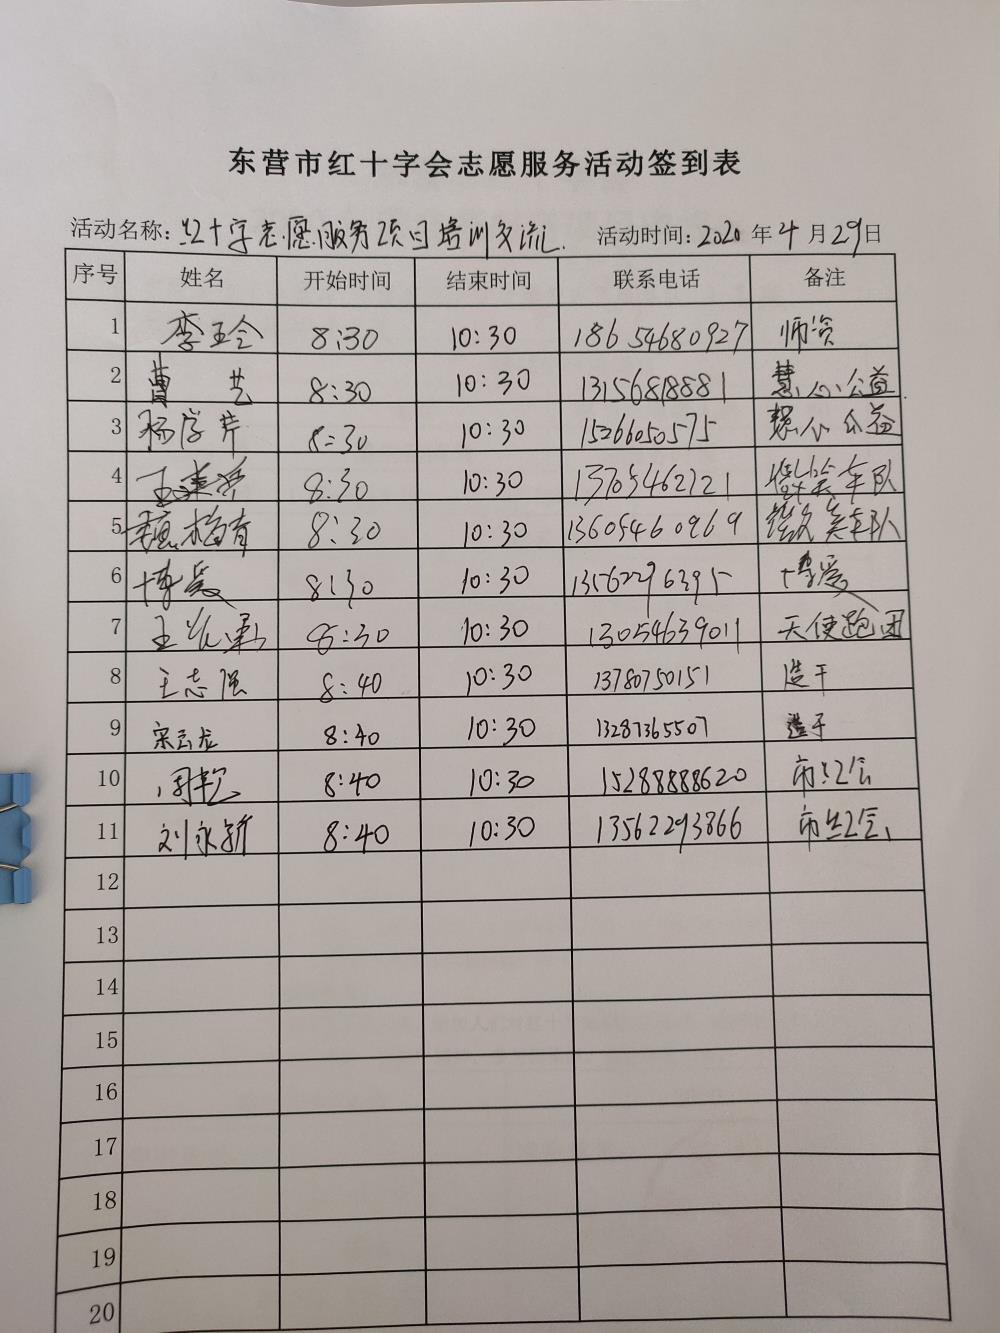 东营市红十字会志愿服务活动签到表
活动名称：红十字志愿服务项目培训交流. 活动时间：2020年4月29日
序号 姓名 开始时间 结束时间 联系电话 备注
1 李玉玲 8:30 10:30 18654680927 师资
2 曹艺 8:30 10:30 13156818881 慧心公益
3 杨学芹 8:30 10:30 15266050575 慧心公益
4 8:30 10:30 13705462721 车队
5 8:30 10:30 13605460969 车队
6 博爱 8:30 10:30 13562296395 博爱
7 王 8:30 10:30 13054639011 天使跑团
8 王志强 8:40 10:30 13780750151 造干
9 宋云龙 8:40 10:30 13287365507 造干
10 周艳 8:40 10:30 15288888620 市红会
11 刘永新 8:40 10:30 13562293866 市红会
12
13
14
15
16
17
18
19
20